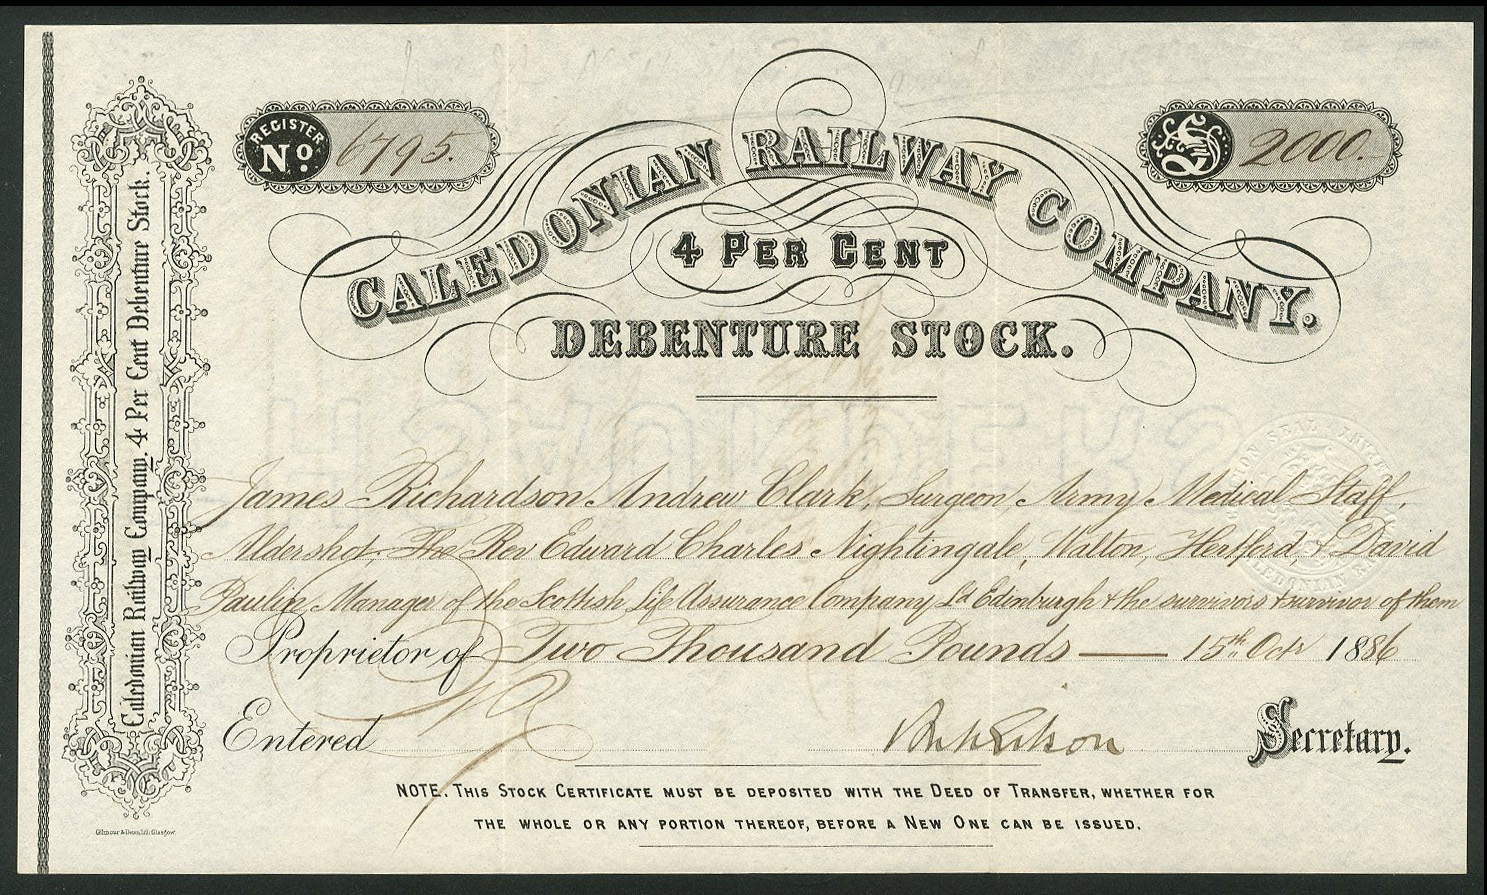 REGISTER No. 6795.
£ 2000.
CALEDONIAN RAILWAY COMPANY.
4 PER CENT
DEBENTURE STOCK.
Caledonian Railway Company. 4 Per Cent Debenture Stock.
James Richardson Andrew Clark, Surgeon Army Medical Staff,
Aldershot, The Rev Edward Charles Nightingale, Walton, Hertford, & David
Paulin Manager of the Scottish Life Assurance Company Ld Edinburgh & the survivors & survivor of them
Proprietor of Two Thousand Pounds — 15th Octr 1886
Entered
Secretary.
NOTE. THIS STOCK CERTIFICATE MUST BE DEPOSITED WITH THE DEED OF TRANSFER, WHETHER FOR
THE WHOLE OR ANY PORTION THEREOF, BEFORE A NEW ONE CAN BE ISSUED.
Gilmour & Dean, lith. Glasgow.